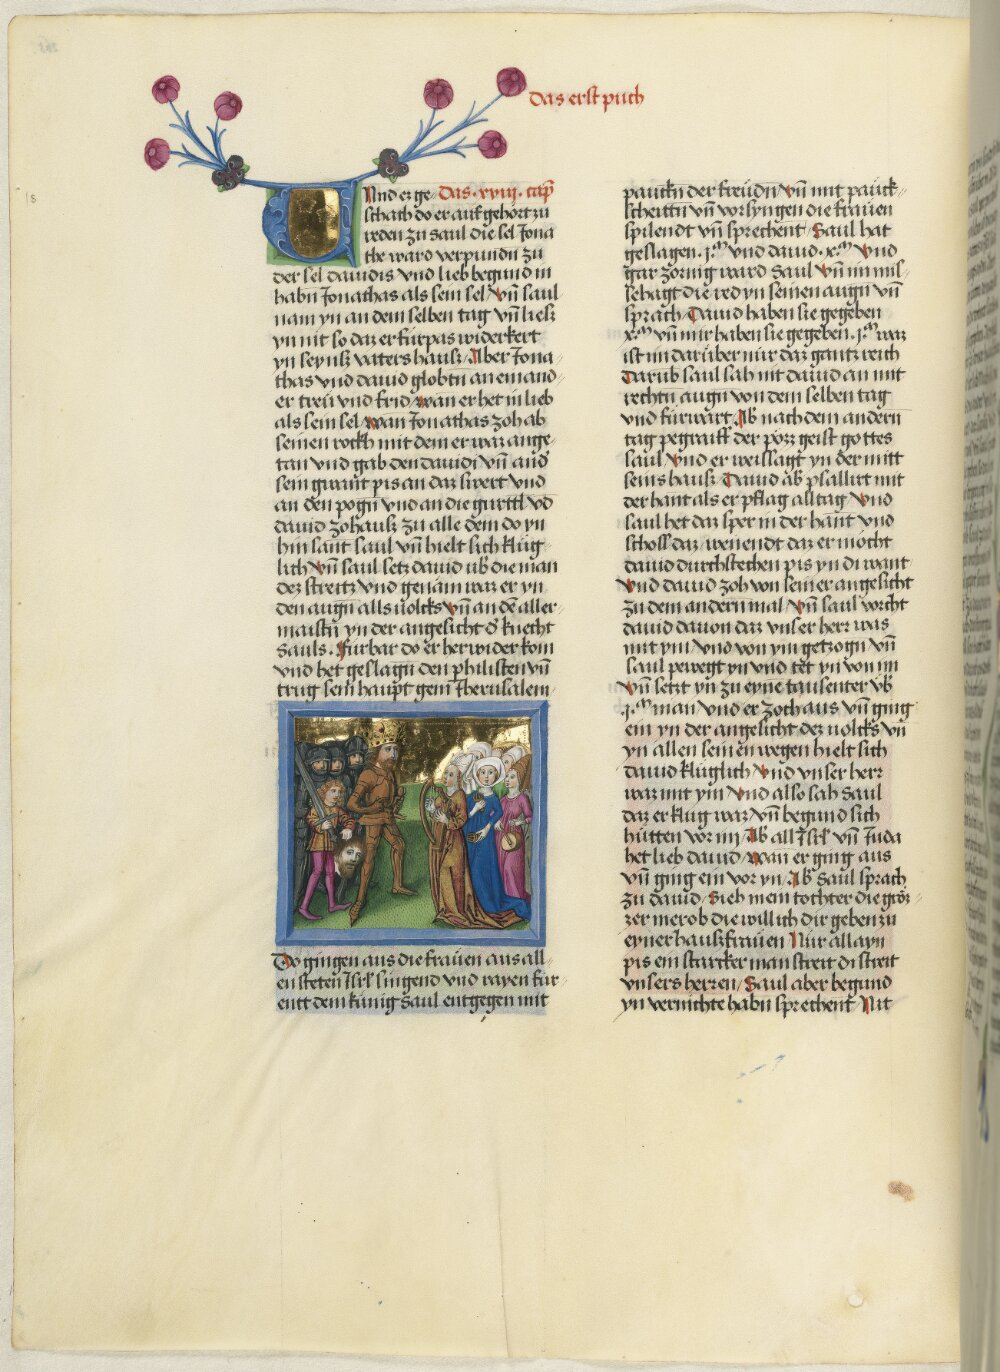 das erst puch
Und er ge das .xviij. cap
schach do er auf gehort zu
reden zu saul die sel Jona
the ward verpundn zu
der sel dauidis vnd lieb begund in
habn Jonathas als sein sel Vn̄ saul
nam yn an dem selben tag vn̄ liesz
yn nit so daz er fürpas widerkert
yn seynsz vaters hausz Aber Jona
thas vnd dauid globtn an einand
er treü vnd frid wan er het in lieb
als sein sel wan Jonathas zoh ab
seinen rockh mit dem er waz ange
tan vnd gab den dauidi vn̄ and̕
sein gwant pis an daz swert vnd
an den pogn vnd an die gurttl vd
dauid zoh ausz zu alle dem do yn
hin sant saul vn̄ hielt sich klüg
lich Vn̄ saul setz dauid ub̕ die man
dez streitz vnd genam waz er yn
den augn alls uolcks Vn̄ an dē aller
maistn̄ yn der angesicht d̕ knecht
Sauls . Fürbar do er herwider kom
vnd het geslagn den philisten vn̄
trug sein haupt gein Jherusalem
Do gingen aus die fraüen aus all
en steten Jsrl̄ singend vnd rayen für
entt dem künig Saul entgegen mit
paückn̄ der freüdn̄ vn̄ mit paück
scheittn̄ vn̄ vorsyngen die fraüen
spilendt vn̄ sprechent Saul hat
geslagen .j.ᵐ vnd dauid .x.ᵐ Vnd
gar zornig ward Saul Vn̄ im mis
sehagt die red yn seinen augn̄ vn̄
sprach Dauid haben sie gegeben
x.ᵐ vn̄ mir haben sie gegeben .j.ᵐ waz
ist im darüber nür daz gantz reich
Darüb saul sah nit dauid an mit
rechtn augn von dem selben tag
vnd fürwart Ab̕ nach dem andern
tag pegraiff der pözz geist gottes
saul Vnd er weissagt yn der mitt
seins hausz Dauid ab̕ psallirt mit
der hant als er pflag alltag Vnd
saul het daz sper in der hant vnd
schosz daz wenendt daz er möcht
dauid durchstechen pis yn di want
Vnd dauid zoh von seiner angesicht
zu dem andern mal Vn̄ saul vorcht
dauid dauon daz vnser herr was
mit ym vnd von ym getzogn vn̄
saul pewegt yn vnd tet yn von im
Vn̄ setzt yn zu eyne tausenter vb̕
.j.ᵐ man vnd er zoch aus vn̄ ging
ein yn der angesicht dez uolcks vn̄
yn allen seinen wegen hielt sich
dauid klüglich Vnd vnser herr
waz mit ym Vnd also sah Saul
daz er klug waz vn̄ begund sich
hütten vor im Ab̕ all Jsrl̄ vn̄ Juda
het lieb dauid wan er ging aus
vn̄ ging ein vor yn Ab̕ Saul sprach
zu dauid Sieh mein tochter die gröz
zer merob die will ich dir geben zu
eyner hauszfraüen Nür allayn
pis ein starcker man streit di streit
vnsers herren Saul aber begund
yn vernichte habn sprechent Nit